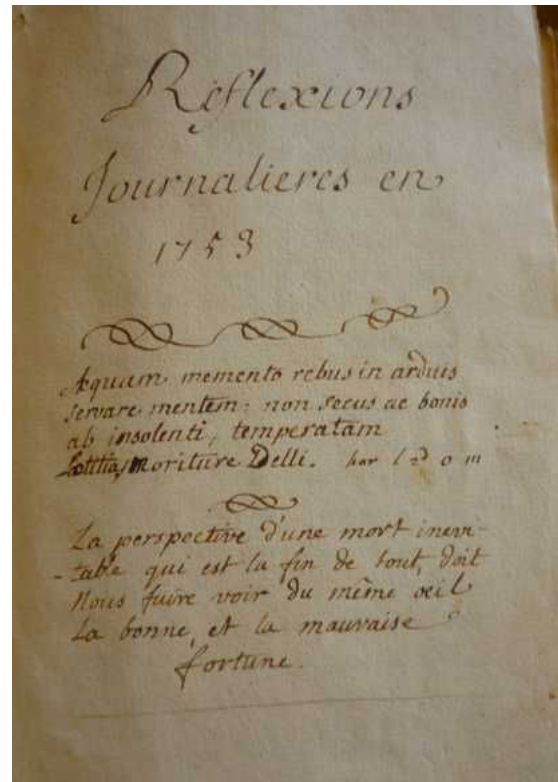 Réflexions
Journalieres en
1753
Æquam memento rebus in arduis
servare mentem: non secus ac bonis
ab insolenti, temperatam
moriture Delli. hor
La perspective d'une mort inevi-
-table qui est la fin de tout, doit
Nous faire voir du même œil
La bonne, et la mauvaise
fortune.